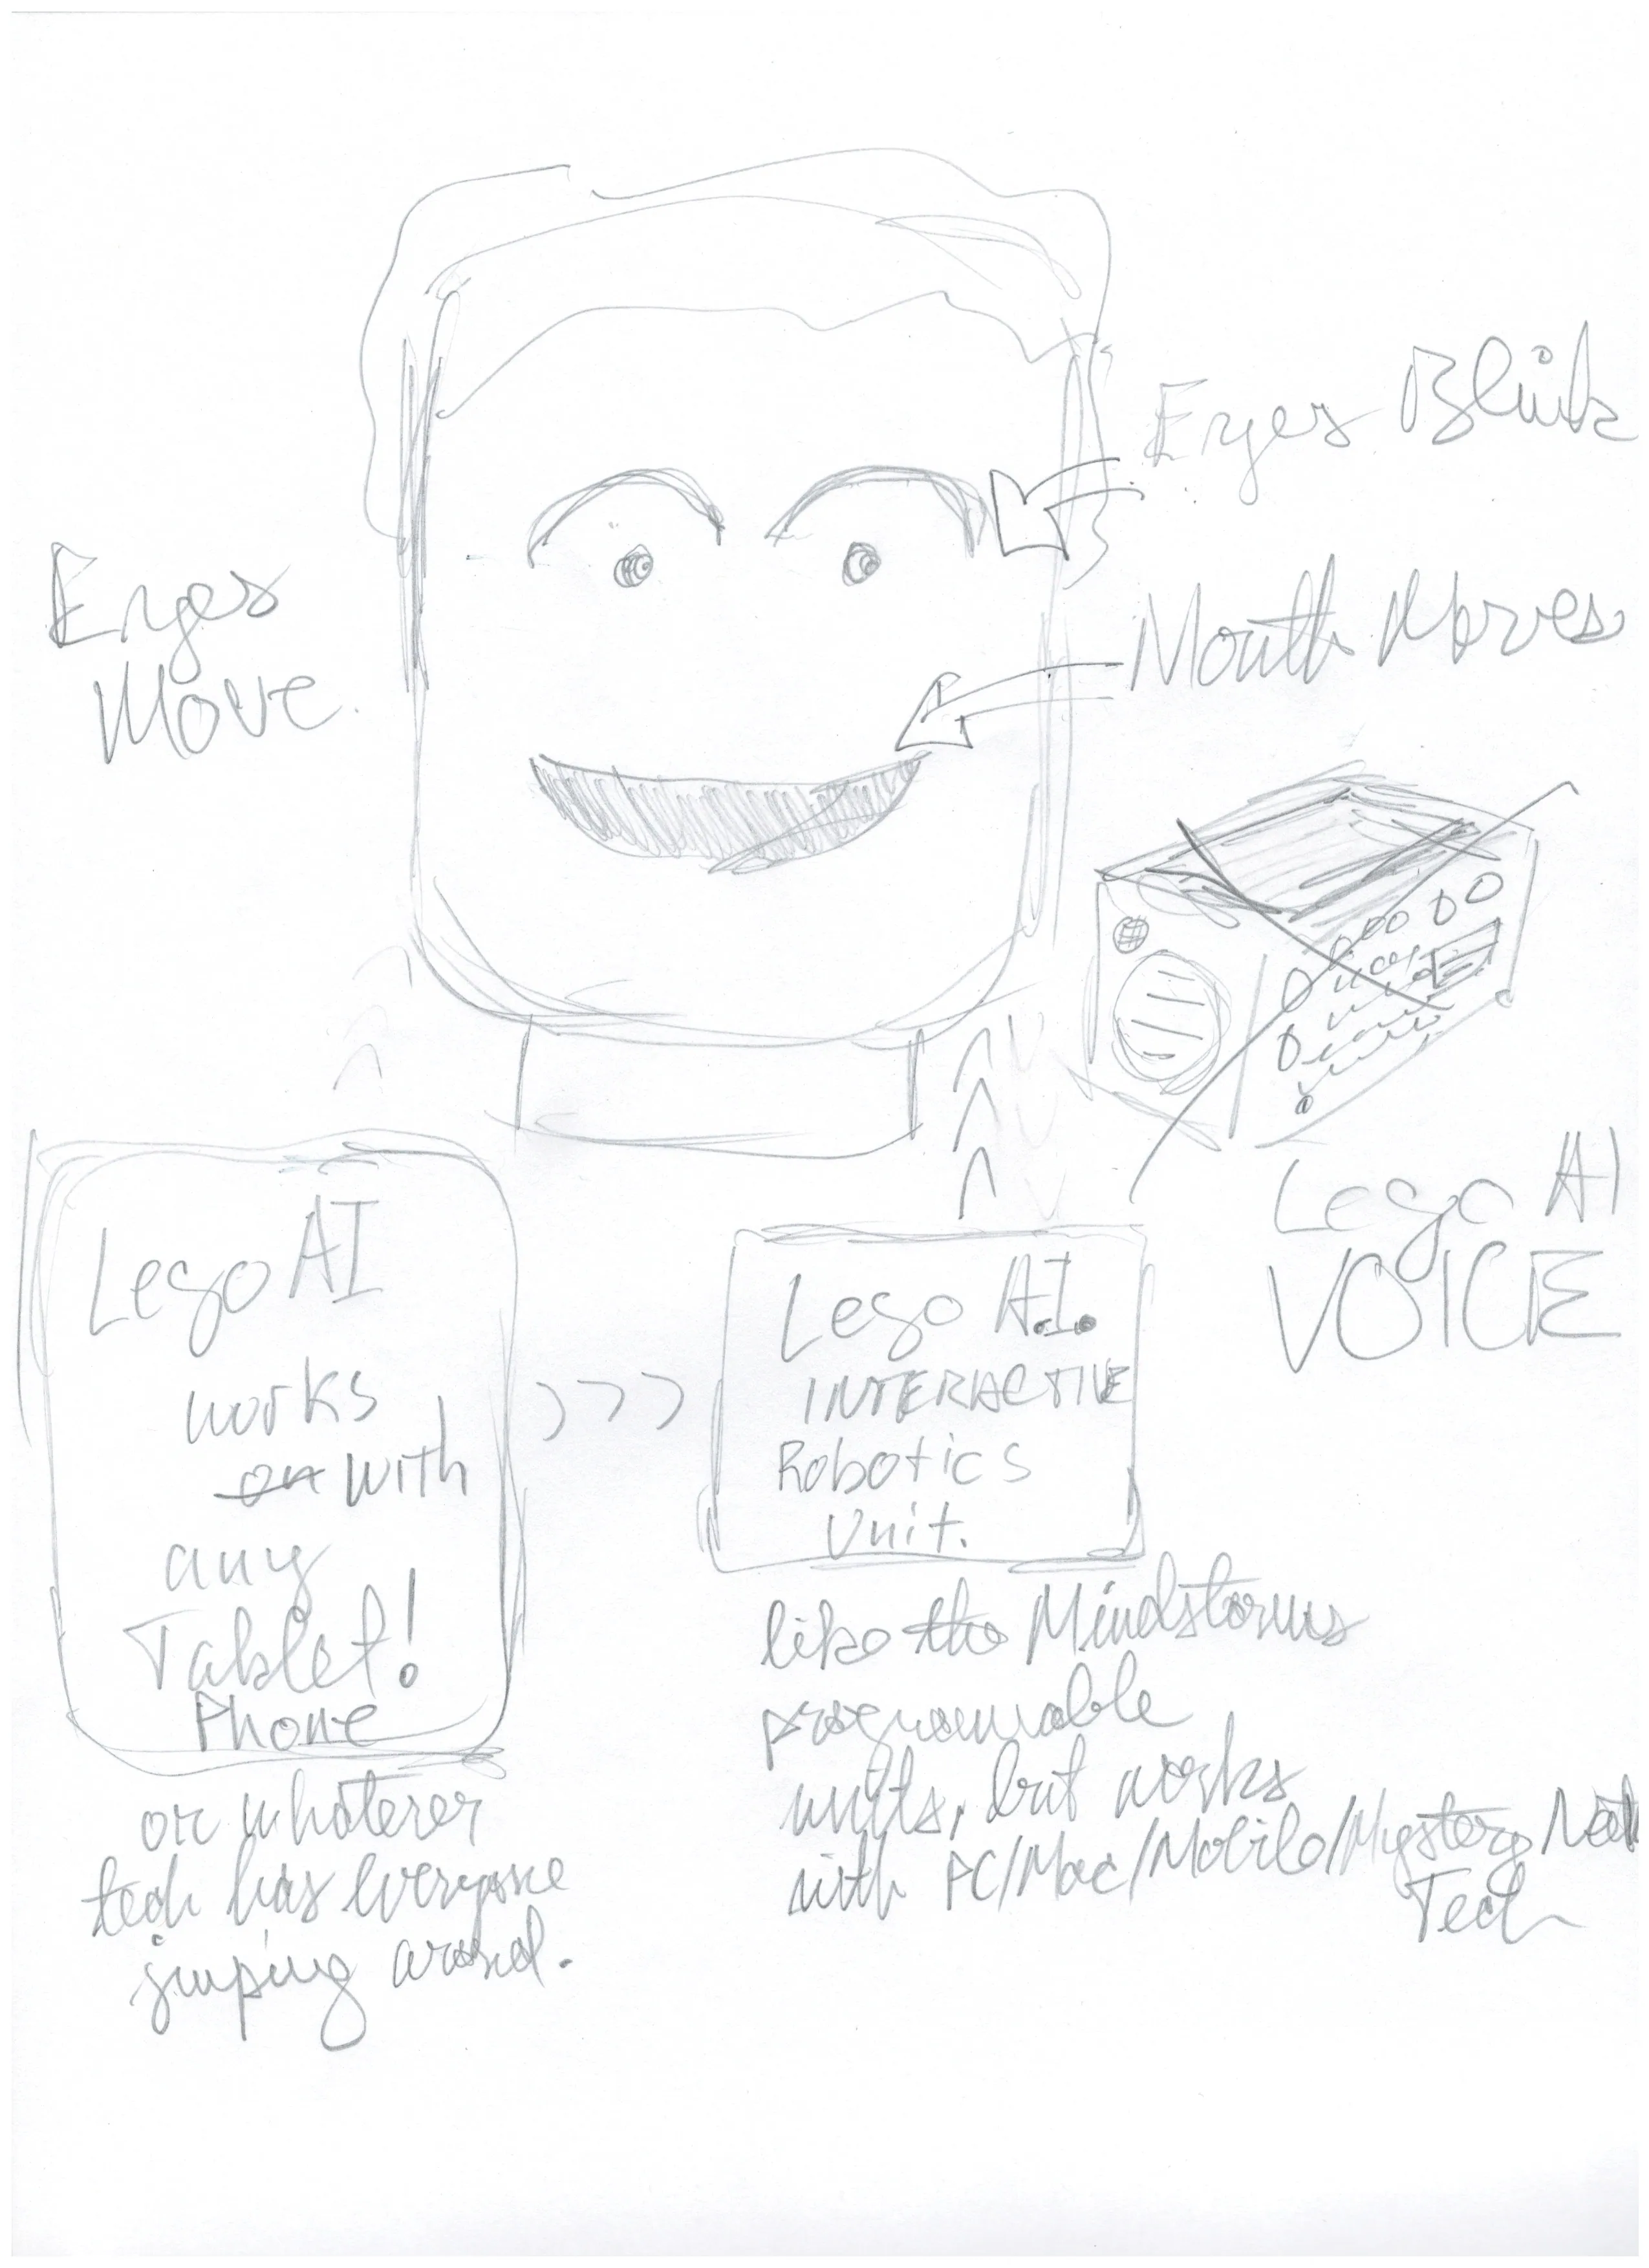 Eyes Blink
Eyes
Move.
Mouth Moves
Lego AI
VOICE
Lego AI
works
on with
any
Tablet!
Phone
or whatever
tech has everyone
jumping around.
Lego A.I.
INTERACTIVE
Robotics
Unit.
like the Mindstorms
programmable
units, but works
with PC/Mac/Mobile/Mystery
Tech